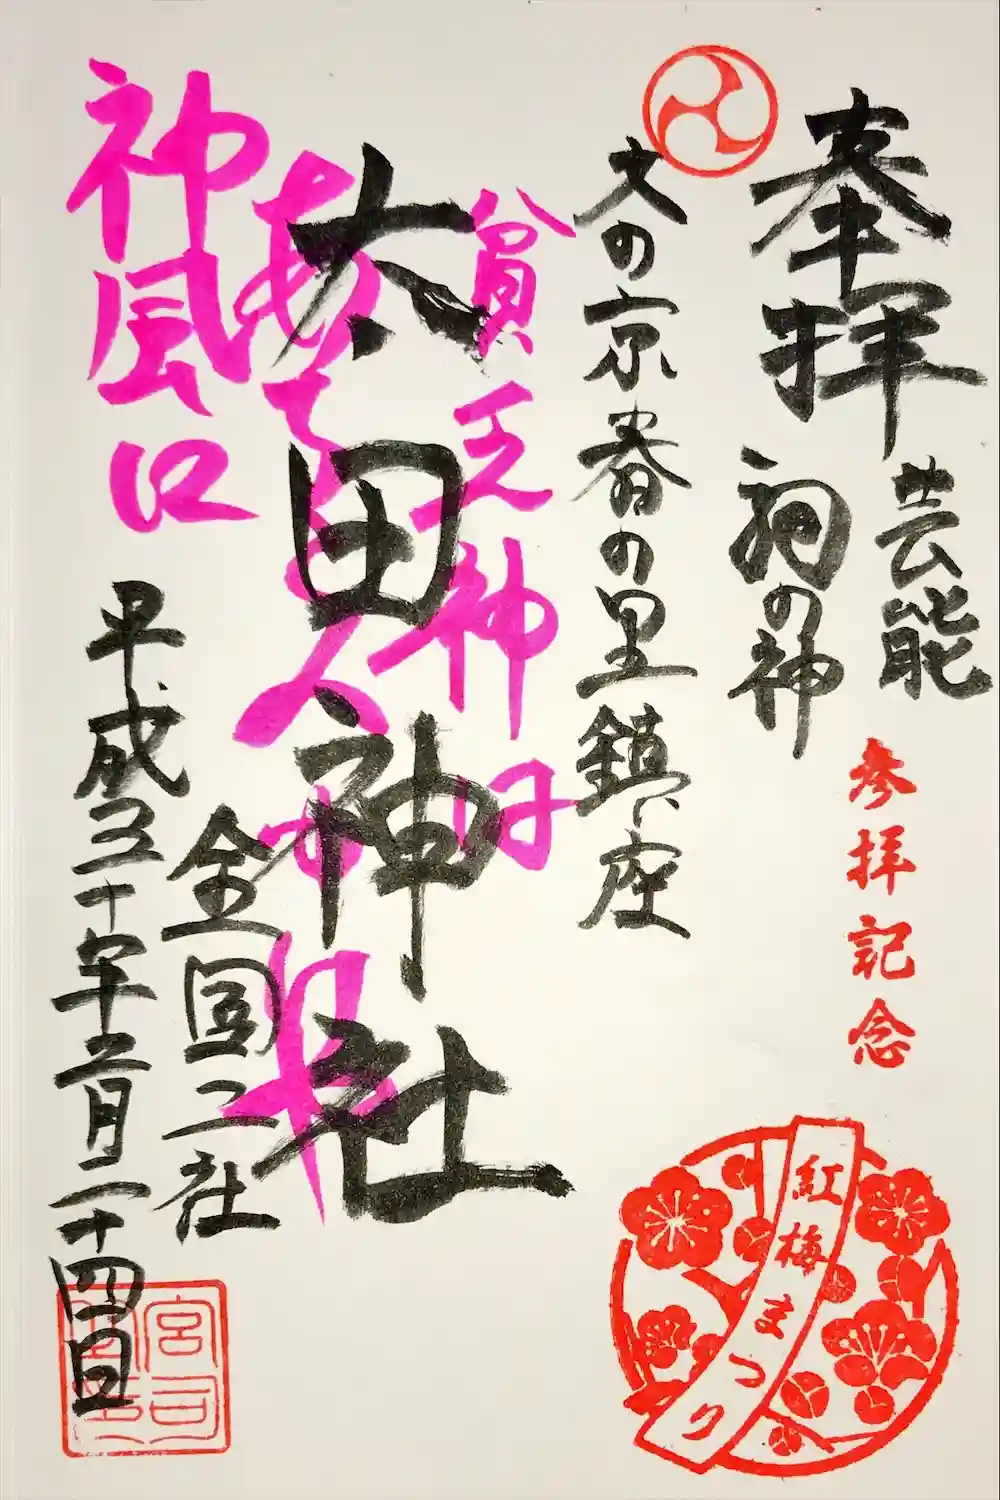 奉拝
芸能
祠の神
参拝記念
文の京春の里鎮座
貧乏神は
太田神社
神風
全国二社
平成三十年三月二十四日
宮司之印
紅梅まつり